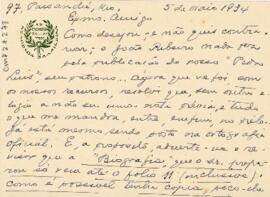 97. Paissandú, Rio, 5 de maio 1934
Exmo. Amigo
Como desejou e não quis contra-
riar; o João Ribeiro nada por
pela publicação do nosso "Pedro
Luis", seu patrono. Agora que se foi com
os nossos recursos, resolvi que, sem outra
e logo a não ser uma nota prévia, e tudo
o que me mandou, entre enfim no prelo.
Já está mesmo sendo posto na ortografia
oficial. E, a propósito, adverte-me o re-
visor que a "Biografia" que o sr. prepa-
rou só veio até o folio 11 (inclusive);
como é possível tenha copia, peço-lhe